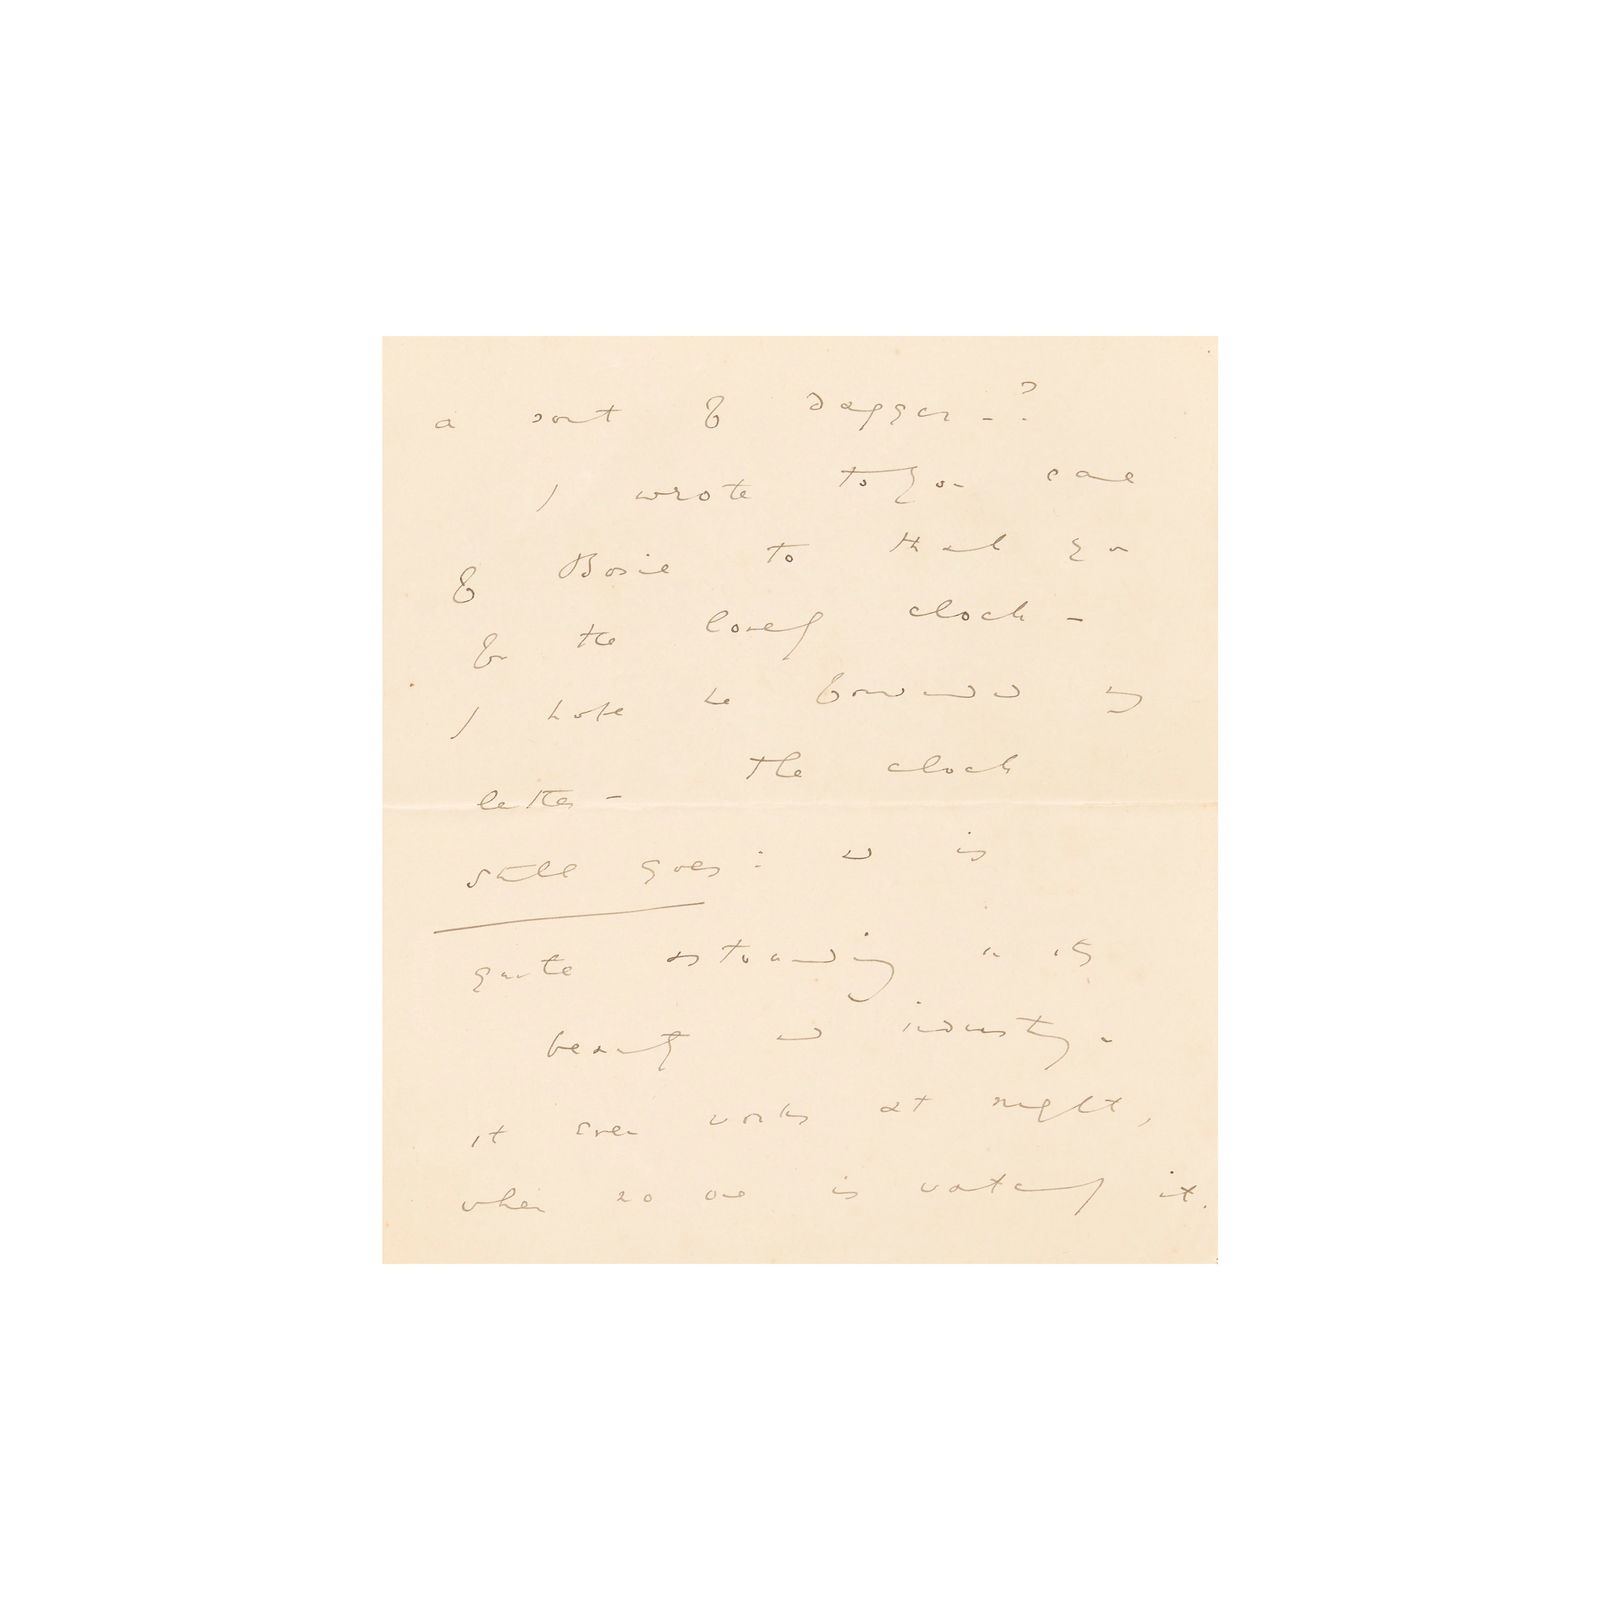 a sort of dagger - ?
I wrote to you care
of Bosie to thank you
for the lovely clock -
I hope he forwarded my
letter - The clock
still goes : and is
quite astounding in its
beauty and industry.
it even works at night,
when no one is watching it.